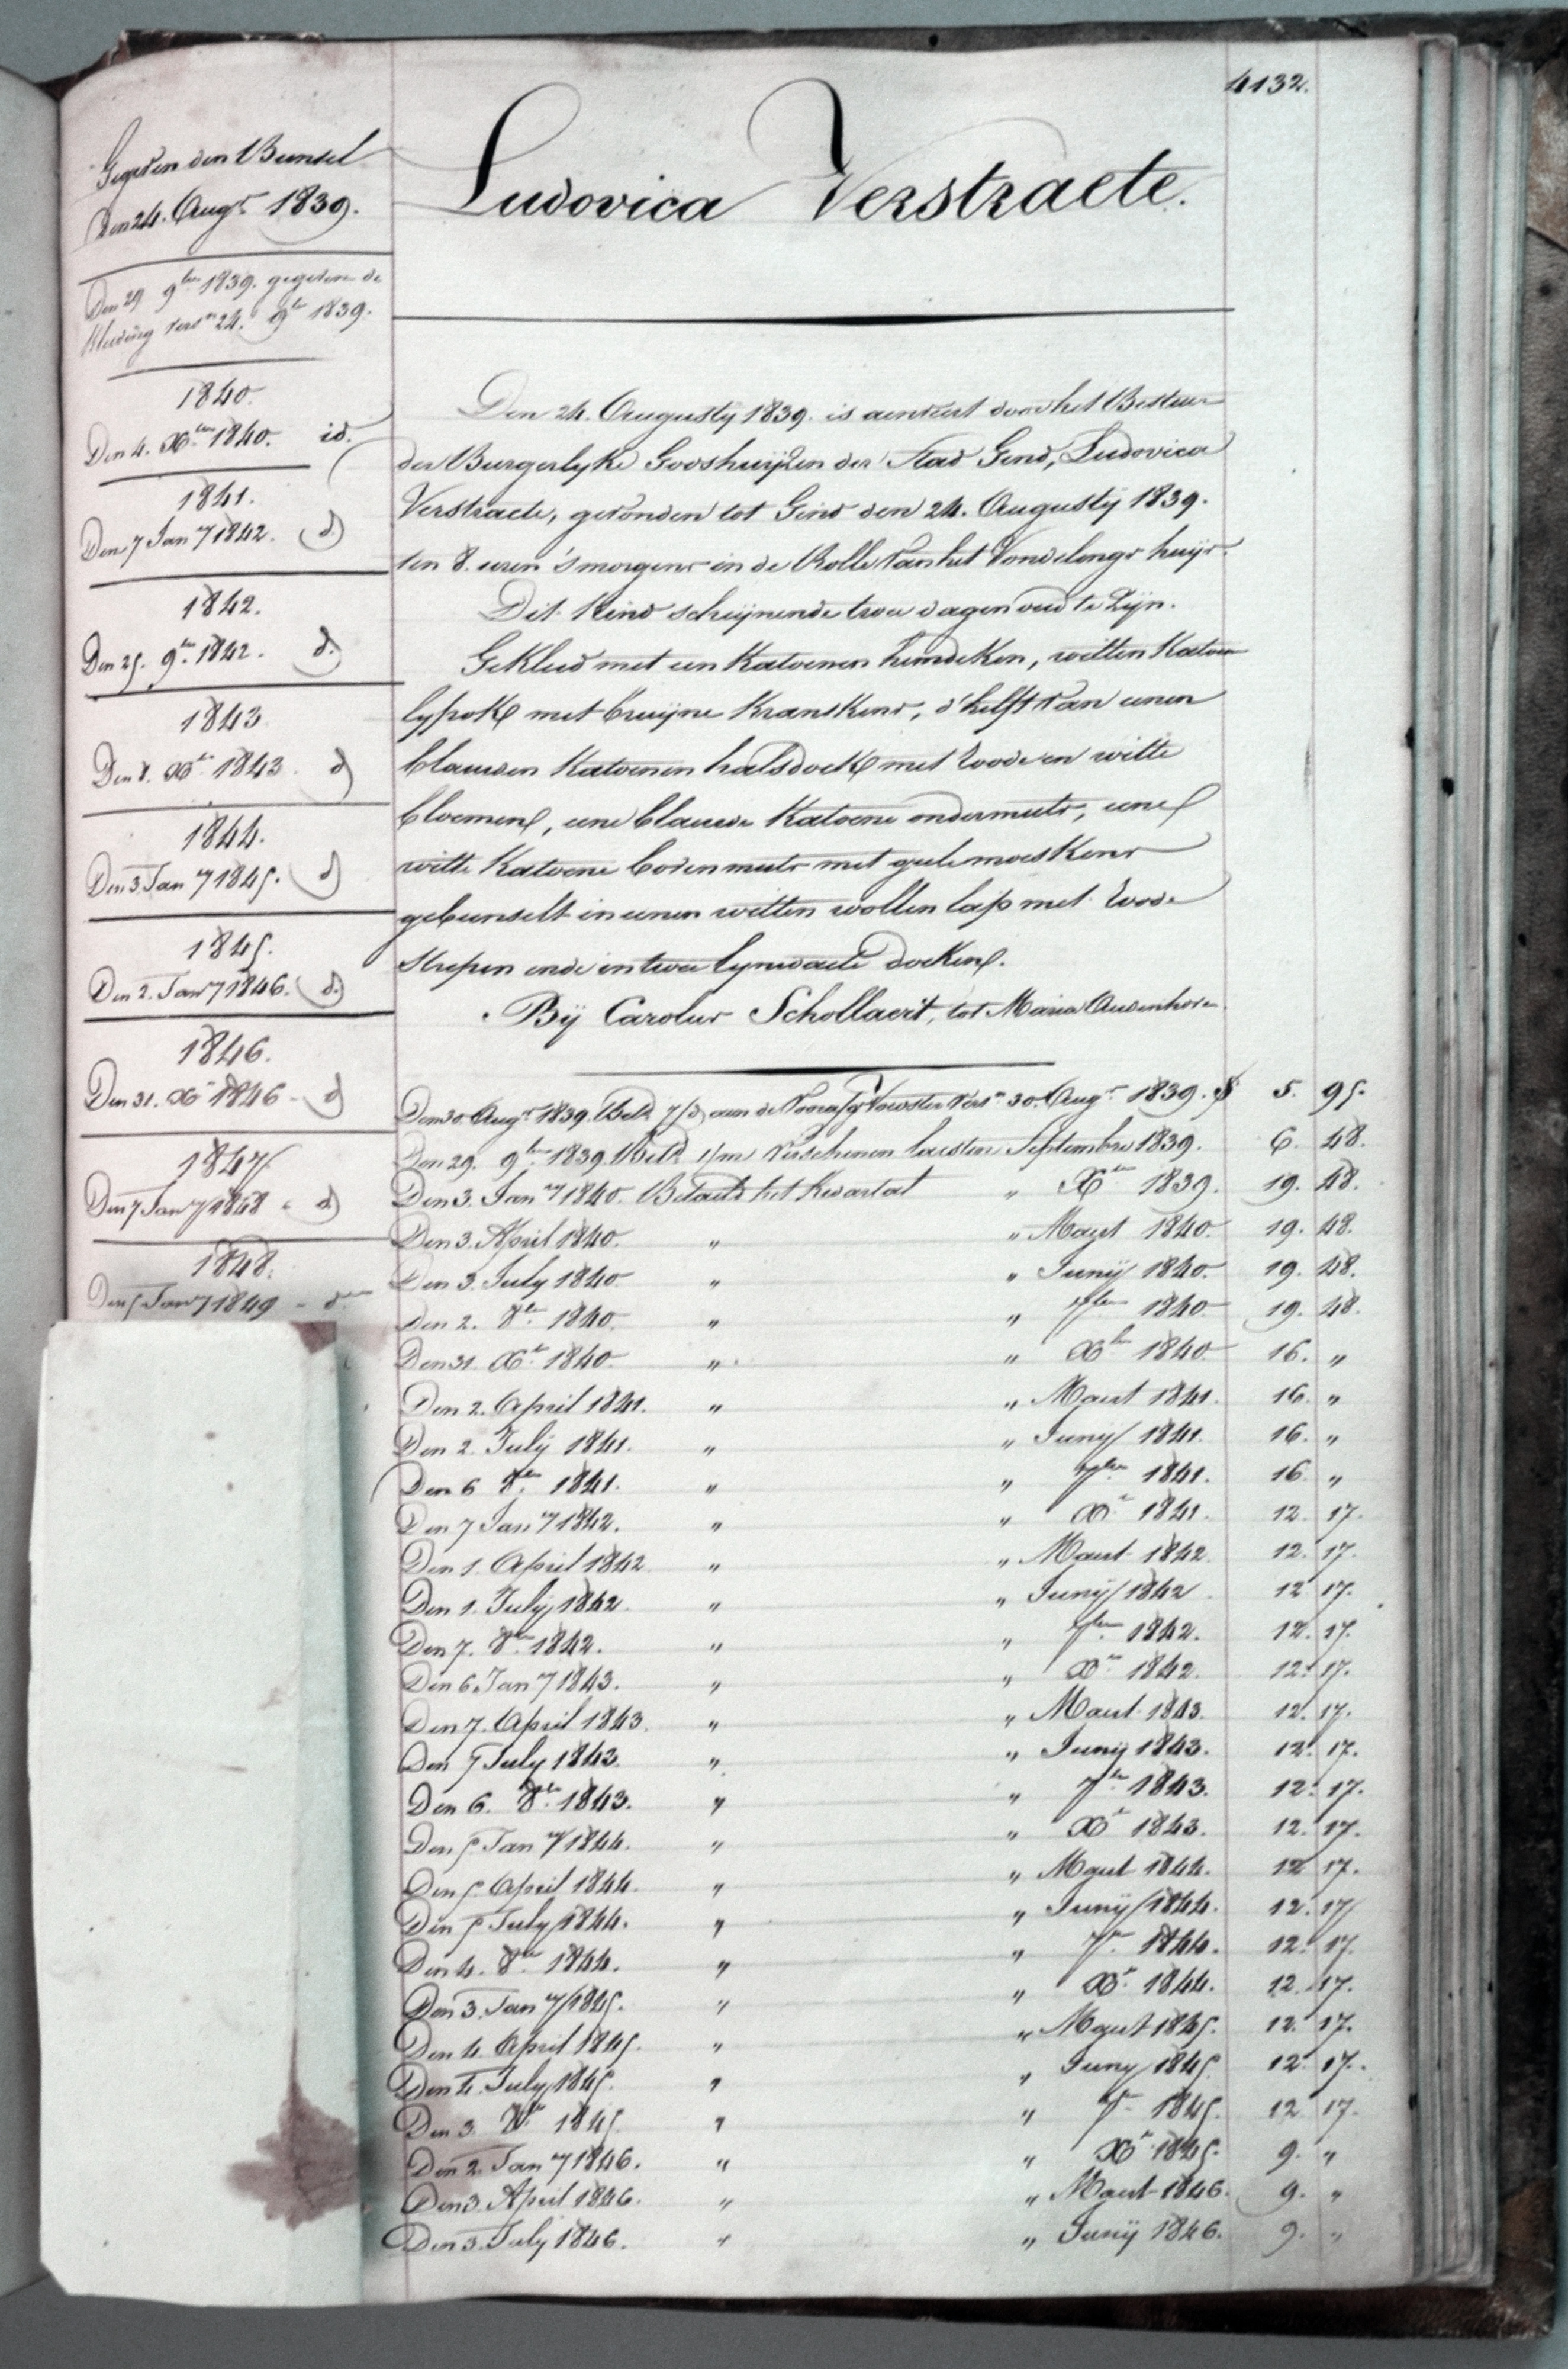 4132.
Ludovica Verstraete.
Gegeven den Bunsel
Den 24. Augt 1839.
Den 29 9ber 1839. gegeven de
Kleeding versn 24. 9br 1839.
1840.
Den 4. Xber 1840. id.
1841.
Den 7 Jany 1842. d)
1842.
Den 25. 9br 1842. d.)
1843
Den 8. Xbr 1843 d)
1844.
Den 3. Jany 1845. d)
1845.
Den 2. Jany 1846. d.)
1846.
Den 31. Xbr 1846 - d)
1847
Den 7 Jany 1848 - d)
1848.
Den 5 Jany 1849 - d
Den 24. Augusty 1839. is aenveert door het Bestuer
der Burgerlyke Godshuijzen der Stad Gend, Ludovica
Verstraete, gevonden tot Gend den 24. Augustij 1839.
ten 8. uren 's morgens in de Rolle van het Vondelings huijs.
Dit Kind schijnende twee dagen oud te zijn.
Gekleed met een Katoenen hemdeken, witten Katoen
lyfrok met bruijne Kranskens, d'helft van eenen
blauwen Katoenen halsdoek met roode en witte
bloemen, eene blauwe Katoene ondermuts, eene
witte Katoene bovenmuts met geele moeskens
gebunselt in eenen witten wollen lap met roode
strepen ende in twee lynwaete doeken.
Bij Carolus Schollaert, tot Maria Audenhove.
Den 30 Augt 1839. Betd 7/d aen de Voorsz Voedster versn 30. Augt 1839. f 5. 95.
Den 29. 9br 1839 Betd 1/m verschenen laesten Septembre 1839. 6. 48.
Den 3. Jany 1840. Betaeld het Kwartael " Xbr 1839. 19. 48.
Den 3. April 1840. " " Maert 1840. 19. 48.
Den 3. July 1840 " " Junij 1840. 19. 48.
Den 2. 8br 1840 " " 7ber 1840 19. 48.
Den 31 Xbr 1840 " " Xbr 1840 16. "
Den 2. April 1841. " " Maert 1841. 16. "
Den 2. July 1841. " " Junij 1841. 16. "
Den 6 8br 1841. " " 7ber 1841. 16. "
Den 7 Jany 1842. " " Xr 1841. 12. 17.
Den 1. April 1842 " " Maert 1842. 12. 17.
Den 1. July 1842. " " Junij 1842 12. 17.
Den 7. 8br 1842. " " 7ber 1842. 12. 17.
Den 6. Jany 1843. " " Xr 1842. 12. 17.
Den 7. April 1843. " " Maert 1843. 12. 17.
Den 7 July 1843. " " Junij 1843. 12. 17.
Den 6. 8br 1843. " " 7br 1843. 12. 17.
Den 5 Jany 1844. " " Xr 1843. 12. 17.
Den 5 April 1844. " " Maert 1844. 12 17.
Den 5 July 1844. " " Junij 1844. 12. 17
Den 4. 8br 1844. " " 7r 1844. 12. 17.
Den 3. Jany 1845. " " Xr 1844. 12. 17.
Den 4. April 1845. " " Maert 1845. 12. 17.
Den 4. July 1845. " " Juny 1845. 12. 17.
Den 3. 8br 1845. " " 7r 1845. 12. 17.
Den 2. Jany 1846. " " Xr 1845. 9. "
Den 3. April 1846. " " Maert 1846. 9. "
Den 3. July 1846. " " Junij 1846. 9. "